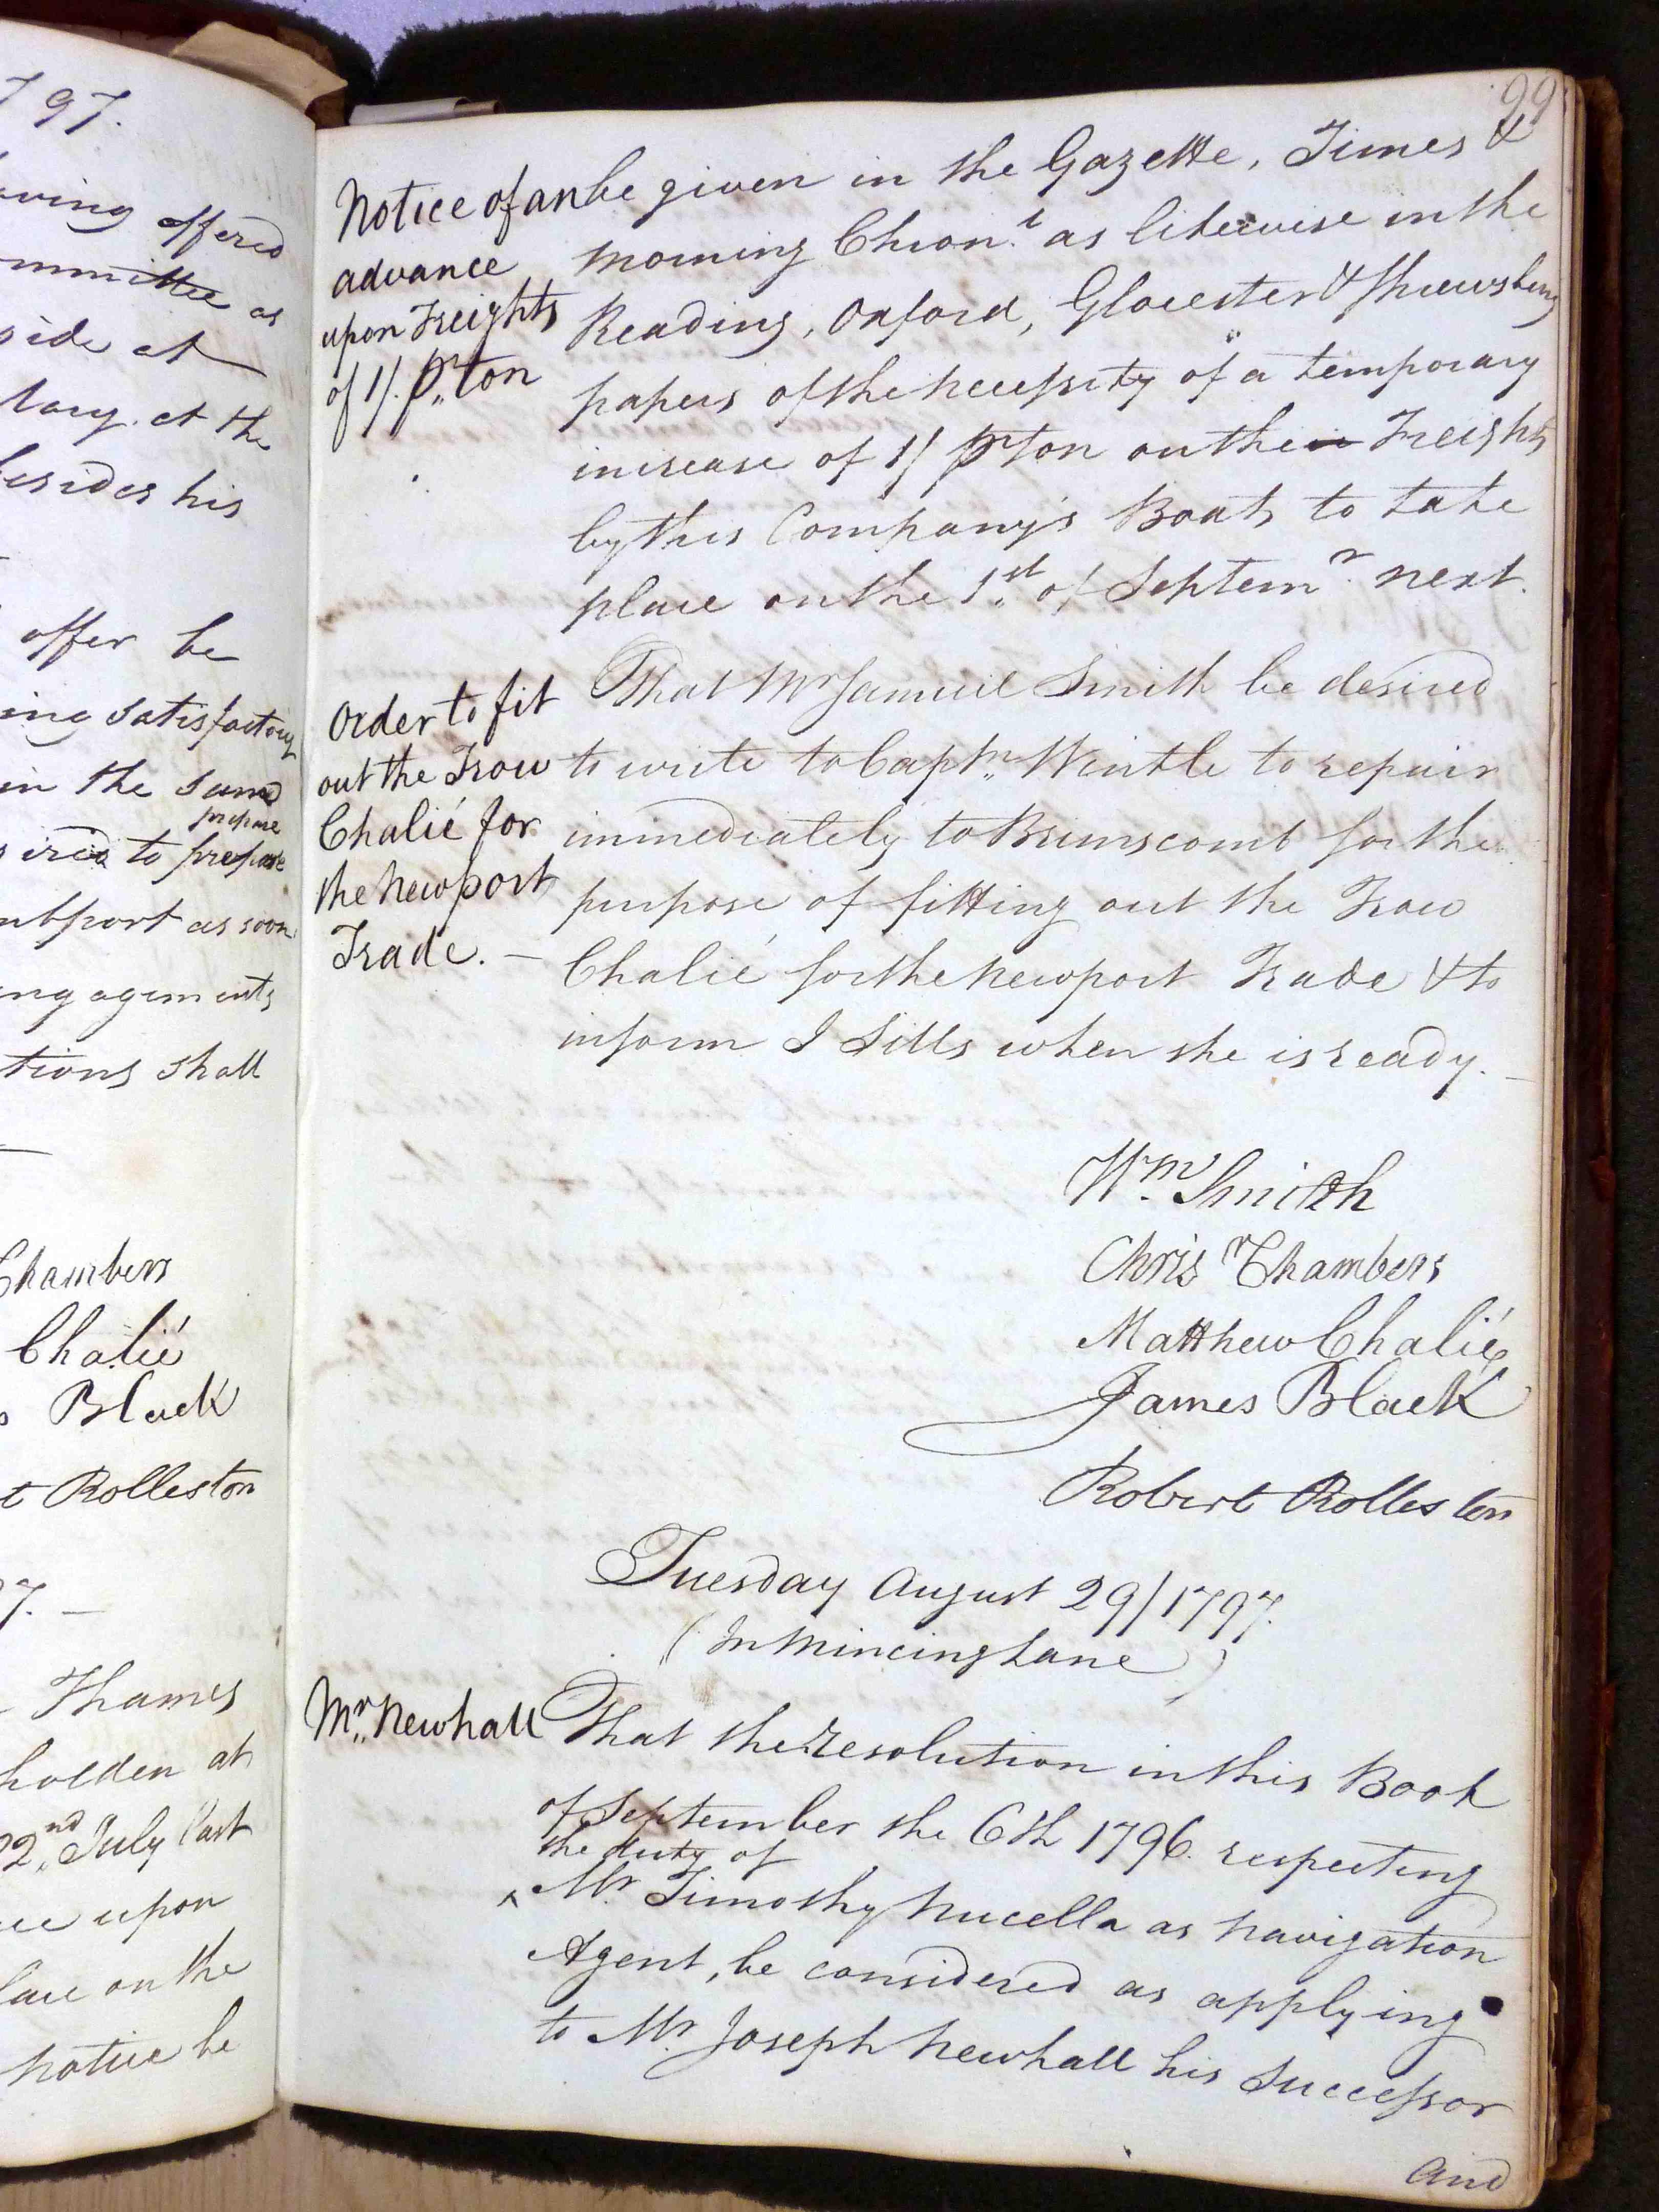 797.
ving offered
mmittee as
side at
tary. at the
besides his
offer be
ing satisfactory
in the same
prepare
sired to prepare
as soon
ngagements
tions shall
Chambers
Chalié
s Black
t Rolleston
97. —
Thames
holden at
22nd July last
ce upon
lace on the
notice be
99
Notice of an
advance
upon Freights
of 1/. pr ton
be given in the Gazette, Times &
Morning Chron.l as likewise in the
Reading, Oxford, Glocester & Shrewsbury
papers of the necessity of a temporary
increase of 1/ pr ton on their Freights
by this Company's Boats to take
place on the 1st of Septemr. next.
Order to fit
out the Trow
Chalié for
the Newport
Trade. —
That Mr Samuel Smith be desired
to write to Captn Wintle to repair
immediately to Brimscomb for the
purpose of fitting out the Trow
Chalié for the Newport Trade & to
inform J Sills when she is ready. —
Wm. Smith
Chrisr Chambers
Matthew Chalié
James Black
Robert Rolleston
Tuesday August 29/1797.
(In Mincing Lane)
Mr. Newhall
That the Resolution in this Book
of September the 6th 1796. respecting
the duty of
^ Mr. Timothy Nucella as Navigation
Agent, be considered as applying
to Mr. Joseph Newhall his Successor
and